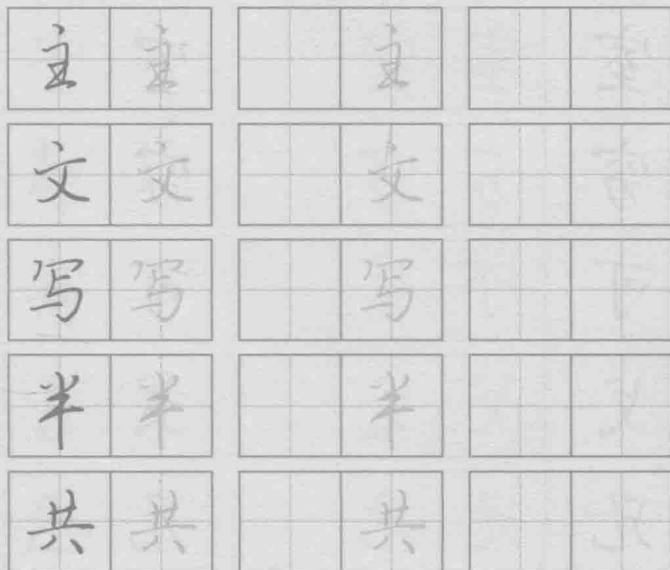 主 主 主
文 文 文
写 写 写
半 半 半
共 共 共